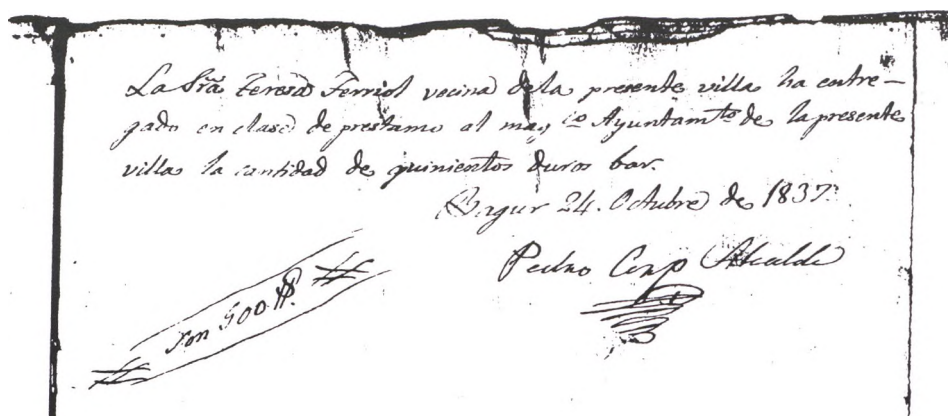 La Sra. Teresa Ferriol vecina de la presente villa ha entre-
gado en clase de prestamo al mag.co Ayuntamto de la presente
villa la cantidad de quinientos duros bar.
Bagur 24. Octubre de 1837.
Pedro Alcalde
Son 500